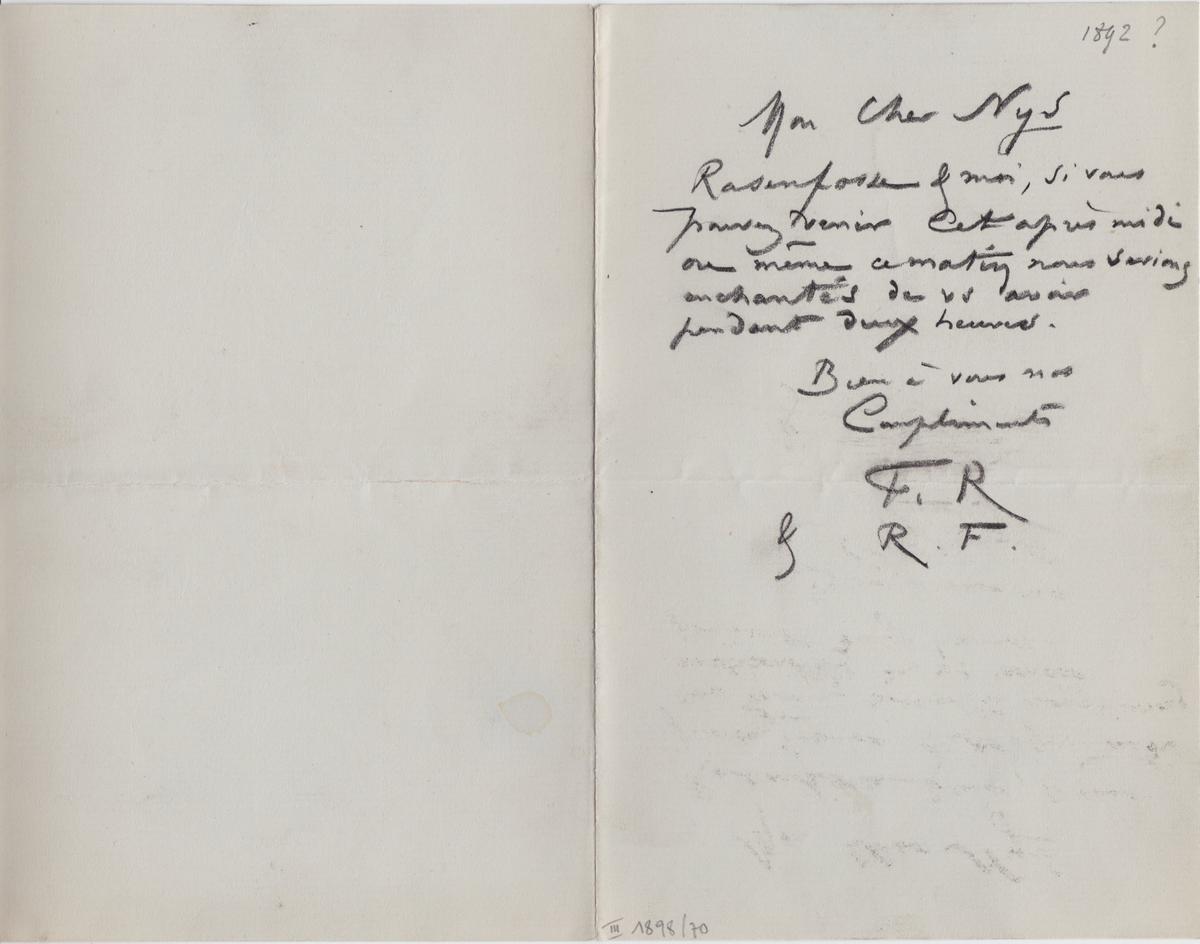 1892 ?
Mon Cher Nys
Rasenfosse & moi, si vous
pouvez venir Cet après midi
ou même ce matin nous serions
enchantés de vs avoir
pendant deux heures.
Bien à vous nos
Compliments
F. R
& R. F.
III 1898/70